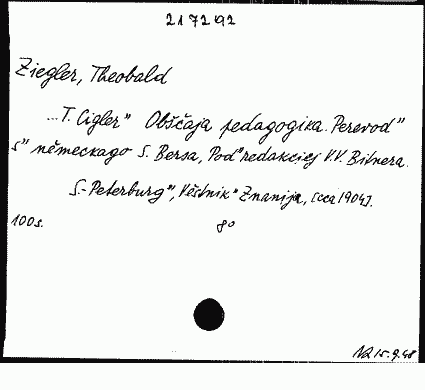 217292
Ziegler, Theobald
...T. Cigler" Obščaja pedagogika. Perevod"
s" německago S. Bersa, Pod" redakciej V.V. Bitnera.
S.-Peterburg", Věstnik" Znanija, [cca 1904].
100 s. 8°
15.9.48